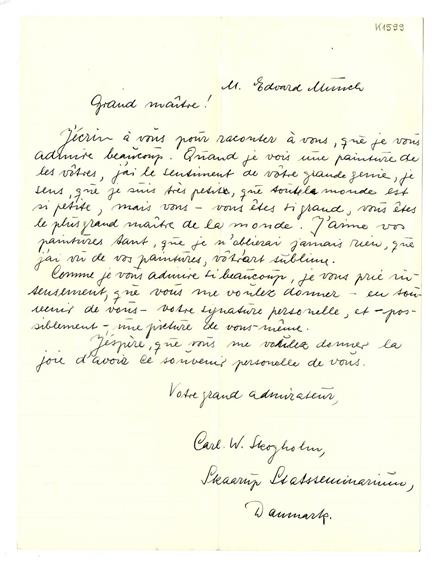 K1599
M. Edvard Munch
Grand maître!
J'écrin à vous pour raconter à vous, que je vous
admire beaucoup. Quand je vois une painture de
les vôtres, j'ai le sentiment de vôtre grande genie, je
sens, que je suis très petite, que toute la monde est
si petite, mais vous - vous êtes si grand, vous êtes
le plus grand maître de la monde. J'aime vos
paintures tant, que je n'oblierai jamais rien, que
j'ai vu de vos paintures, vôtr'art sublim.
Comme je vous admire si beaucoup, je vous prie
que vous me voulez donner - en sou-
venir de vous - votre signature personelle, et - pos-
siblement - une picture de vous-même.
J'éspère, que vous me voulez donner la
joie d'avoir ce souvenir personelle de vous.
Votre grand admirateur,
Carl. W. Skogholm,
Skaarup Statsseminarium,
Danmark.